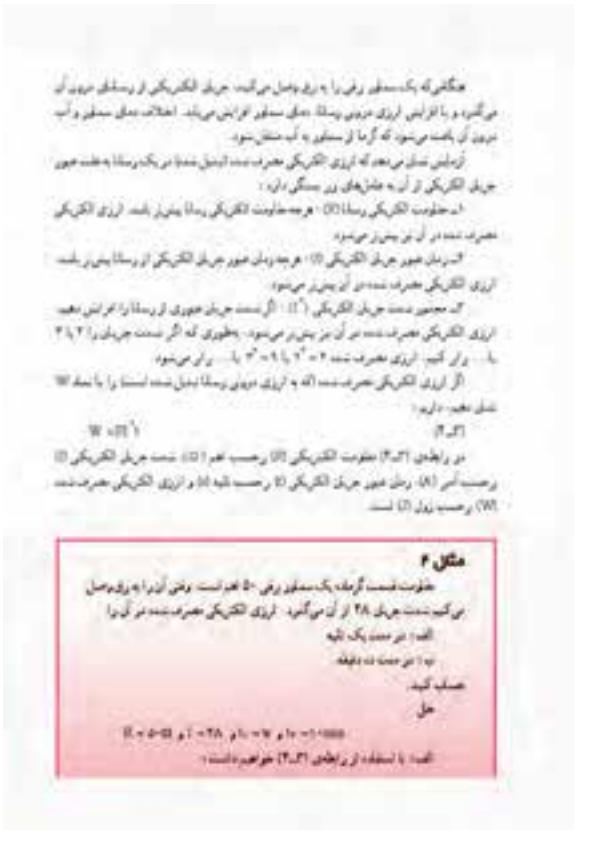 هنگامی‌که یک سماور برقی را به برق وصل می‌کنید، جریان الکتریکی از رسانای درون آن
می‌گذرد و با افزایش انرژی درونی رسانا، دمای سماور افزایش می‌یابد. اختلاف دمای سماور و آب
درون آن باعث می‌شود که گرما از سماور به آب منتقل شود.
آزمایش نشان می‌دهد که انرژی الکتریکی مصرف شده (تبدیل شده) در یک رسانا به علت عبور
جریان الکتریکی از آن به عامل‌های زیر بستگی دارد :
۱ــ مقاومت الکتریکی رسانا (R) : هرچه مقاومت الکتریکی رسانا بیش‌تر باشد، انرژی الکتریکی
مصرف شده در آن نیز بیش‌تر می‌شود.
۲ــ زمان عبور جریان الکتریکی (t) : هرچه زمان عبور جریان الکتریکی از رسانا بیش‌تر باشد،
انرژی الکتریکی مصرف شده در آن بیش‌تر می‌شود.
۳ــ مجذور شدت جریان الکتریکی (I²) : اگر شدت جریان عبوری از رسانا را افزایش دهیم،
انرژی الکتریکی مصرف شده در آن نیز بیش‌تر می‌شود. به‌طوری که اگر شدت جریان را ۲ یا ۳
یا ... برابر کنیم، انرژی مصرف شده ۲²=۴ یا ۳²=۹ یا ... برابر می‌شود.
اگر انرژی الکتریکی مصرف شده (که به انرژی درونی رسانا تبدیل شده است) را با نماد W
نشان دهیم، داریم :
W = RI²t (۳ــ۲)
در رابطه‌ی (۳ــ۲) مقاومت الکتریکی (R) برحسب اهم (Ω)، شدت جریان الکتریکی (I)
برحسب آمپر (A)، زمان عبور جریان الکتریکی (t) برحسب ثانیه (s) و انرژی الکتریکی مصرف شده
(W) برحسب ژول (J) است.
مثال ۲
مقاومت قسمت گرماده یک سماور برقی ۵۰ اهم است. وقتی آن را به برق وصل
می‌کنیم شدت جریان ۲A از آن می‌گذرد. انرژی الکتریکی مصرف شده در آن را
الف : در مدت یک ثانیه
ب : در مدت ده دقیقه
حساب کنید.
حل
R = ۵۰Ω و I = ۲A و
الف : با استفاده از رابطه‌ی (۳ــ۲) خواهیم داشت :